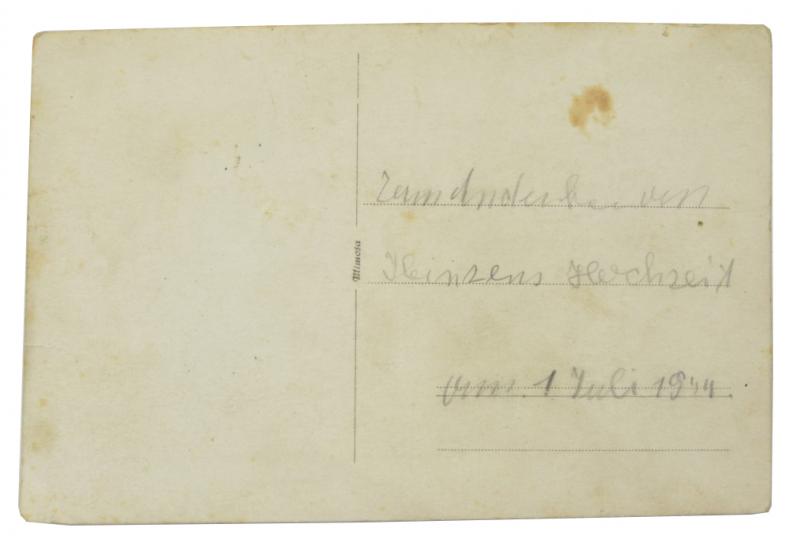 Mimosa
Zum Andenken von
Heinzens Hochzeit
am 1 Juli 1944.